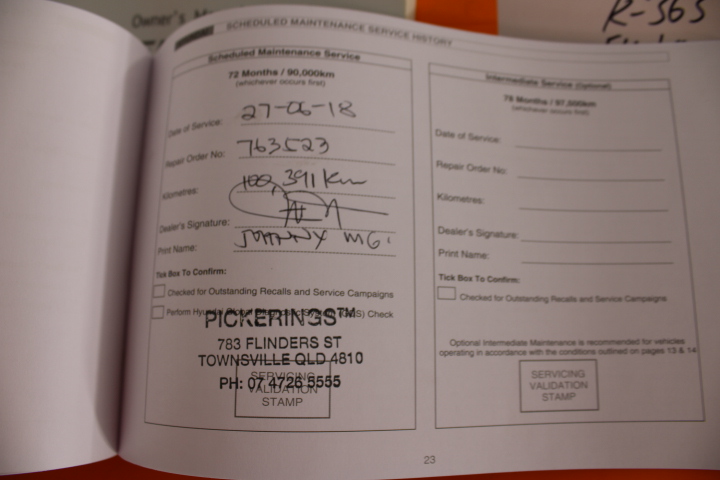 Owner's
R-565
SCHEDULED MAINTENANCE SERVICE HISTORY
Scheduled Maintenance Service
72 Months / 90,000km
(whichever occurs first)
Date of Service: 27-06-18
Repair Order No: 763523
Kilometres: 100,391 Km
Dealer's Signature:
Print Name: JOHNNY MG.
Tick Box To Confirm:
Checked for Outstanding Recalls and Service Campaigns
Perform Hyundai Global Diagnostic System (GDS) Check
PICKERINGS™
783 FLINDERS ST
TOWNSVILLE QLD 4810
PH: 07 4726 5555
SERVICING
VALIDATION
STAMP
Intermediate Service (Optional)
78 Months / 97,500km
(whichever occurs first)
Date of Service:
Repair Order No:
Kilometres:
Dealer's Signature:
Print Name:
Tick Box To Confirm:
Checked for Outstanding Recalls and Service Campaigns
Optional Intermediate Maintenance is recommended for vehicles
operating in accordance with the conditions outlined on pages 13 & 14
SERVICING
VALIDATION
STAMP
23